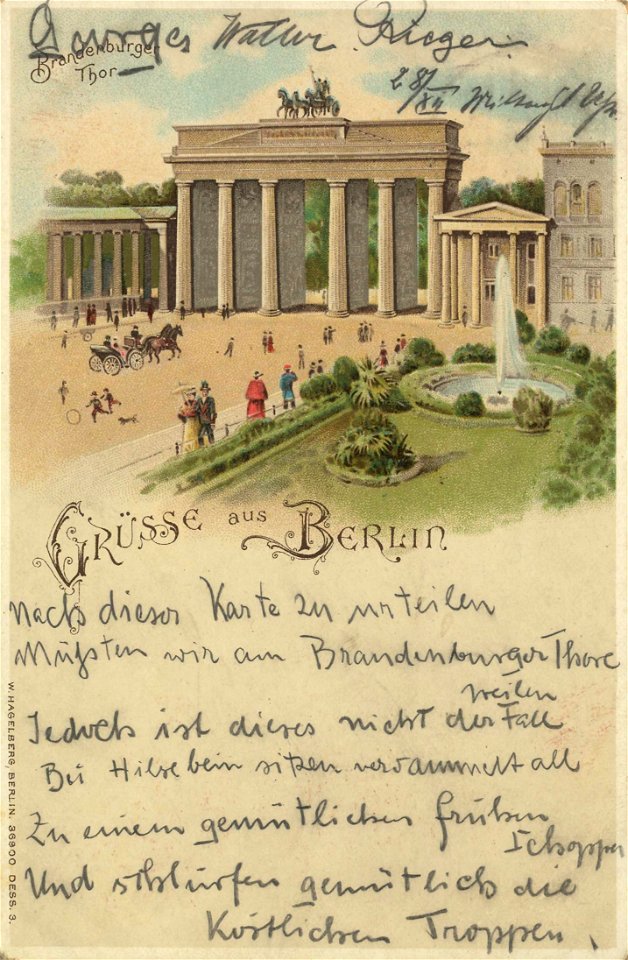 Georges Walter Rieger.
28/XII
Brandenburger
Thor
GRÜSSE aus BERLIN
nach dieser Karte zu urteilen
Müßten wir am Brandenburger Thore
weilen
Jedoch ist dieses nicht der Fall
Bei Hilsebein sitzen versammelt all
Zu einem gemütlichen frühen
Schoppen
Und schlürfen gemütlich die
Köstlichen Troppen.
W. HAGELBERG, BERLIN. 36900 DESS. 3.